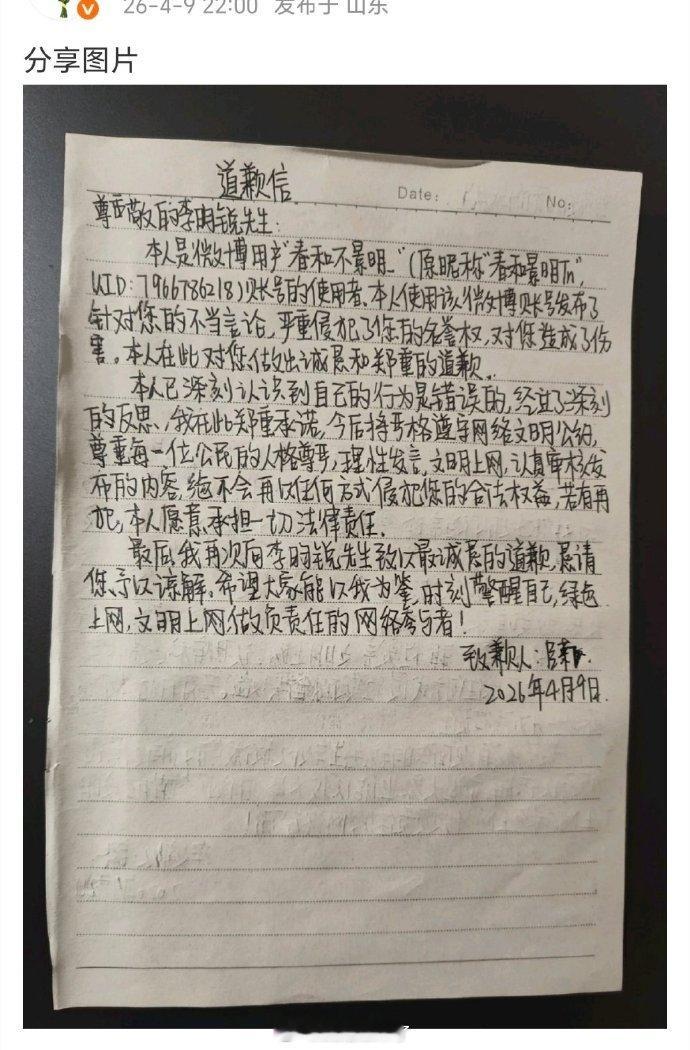 26-4-9 22:00 发布于 山东
分享图片
道歉信
Date:
No:
尊敬的李昀锐先生:
本人是微博用户"春和不景明_"(原昵称"春和景明Tn",
UID:7966786218)账号的使用者。本人使用该微博账号发布了
针对您的不当言论,严重侵犯了您的名誉权,对您造成了伤
害。本人在此对您做出诚恳和郑重的道歉。
本人已深刻认识到自己的行为是错误的,经过了深刻
的反思,我在此郑重承诺,今后将严格遵守网络文明公约,
尊重每一位公民的人格尊严,理性发言,文明上网,认真审核发
布的内容,绝不会再以任何方式侵犯您的合法权益,若有再
犯,本人愿意承担一切法律责任。
最后,我再次向李昀锐先生致以最诚恳的道歉,恳请
您予以谅解。希望大家能以我为鉴,时刻警醒自己,绿色
上网,文明上网,做负责任的网络参与者!
致歉人:
2026年4月9日.